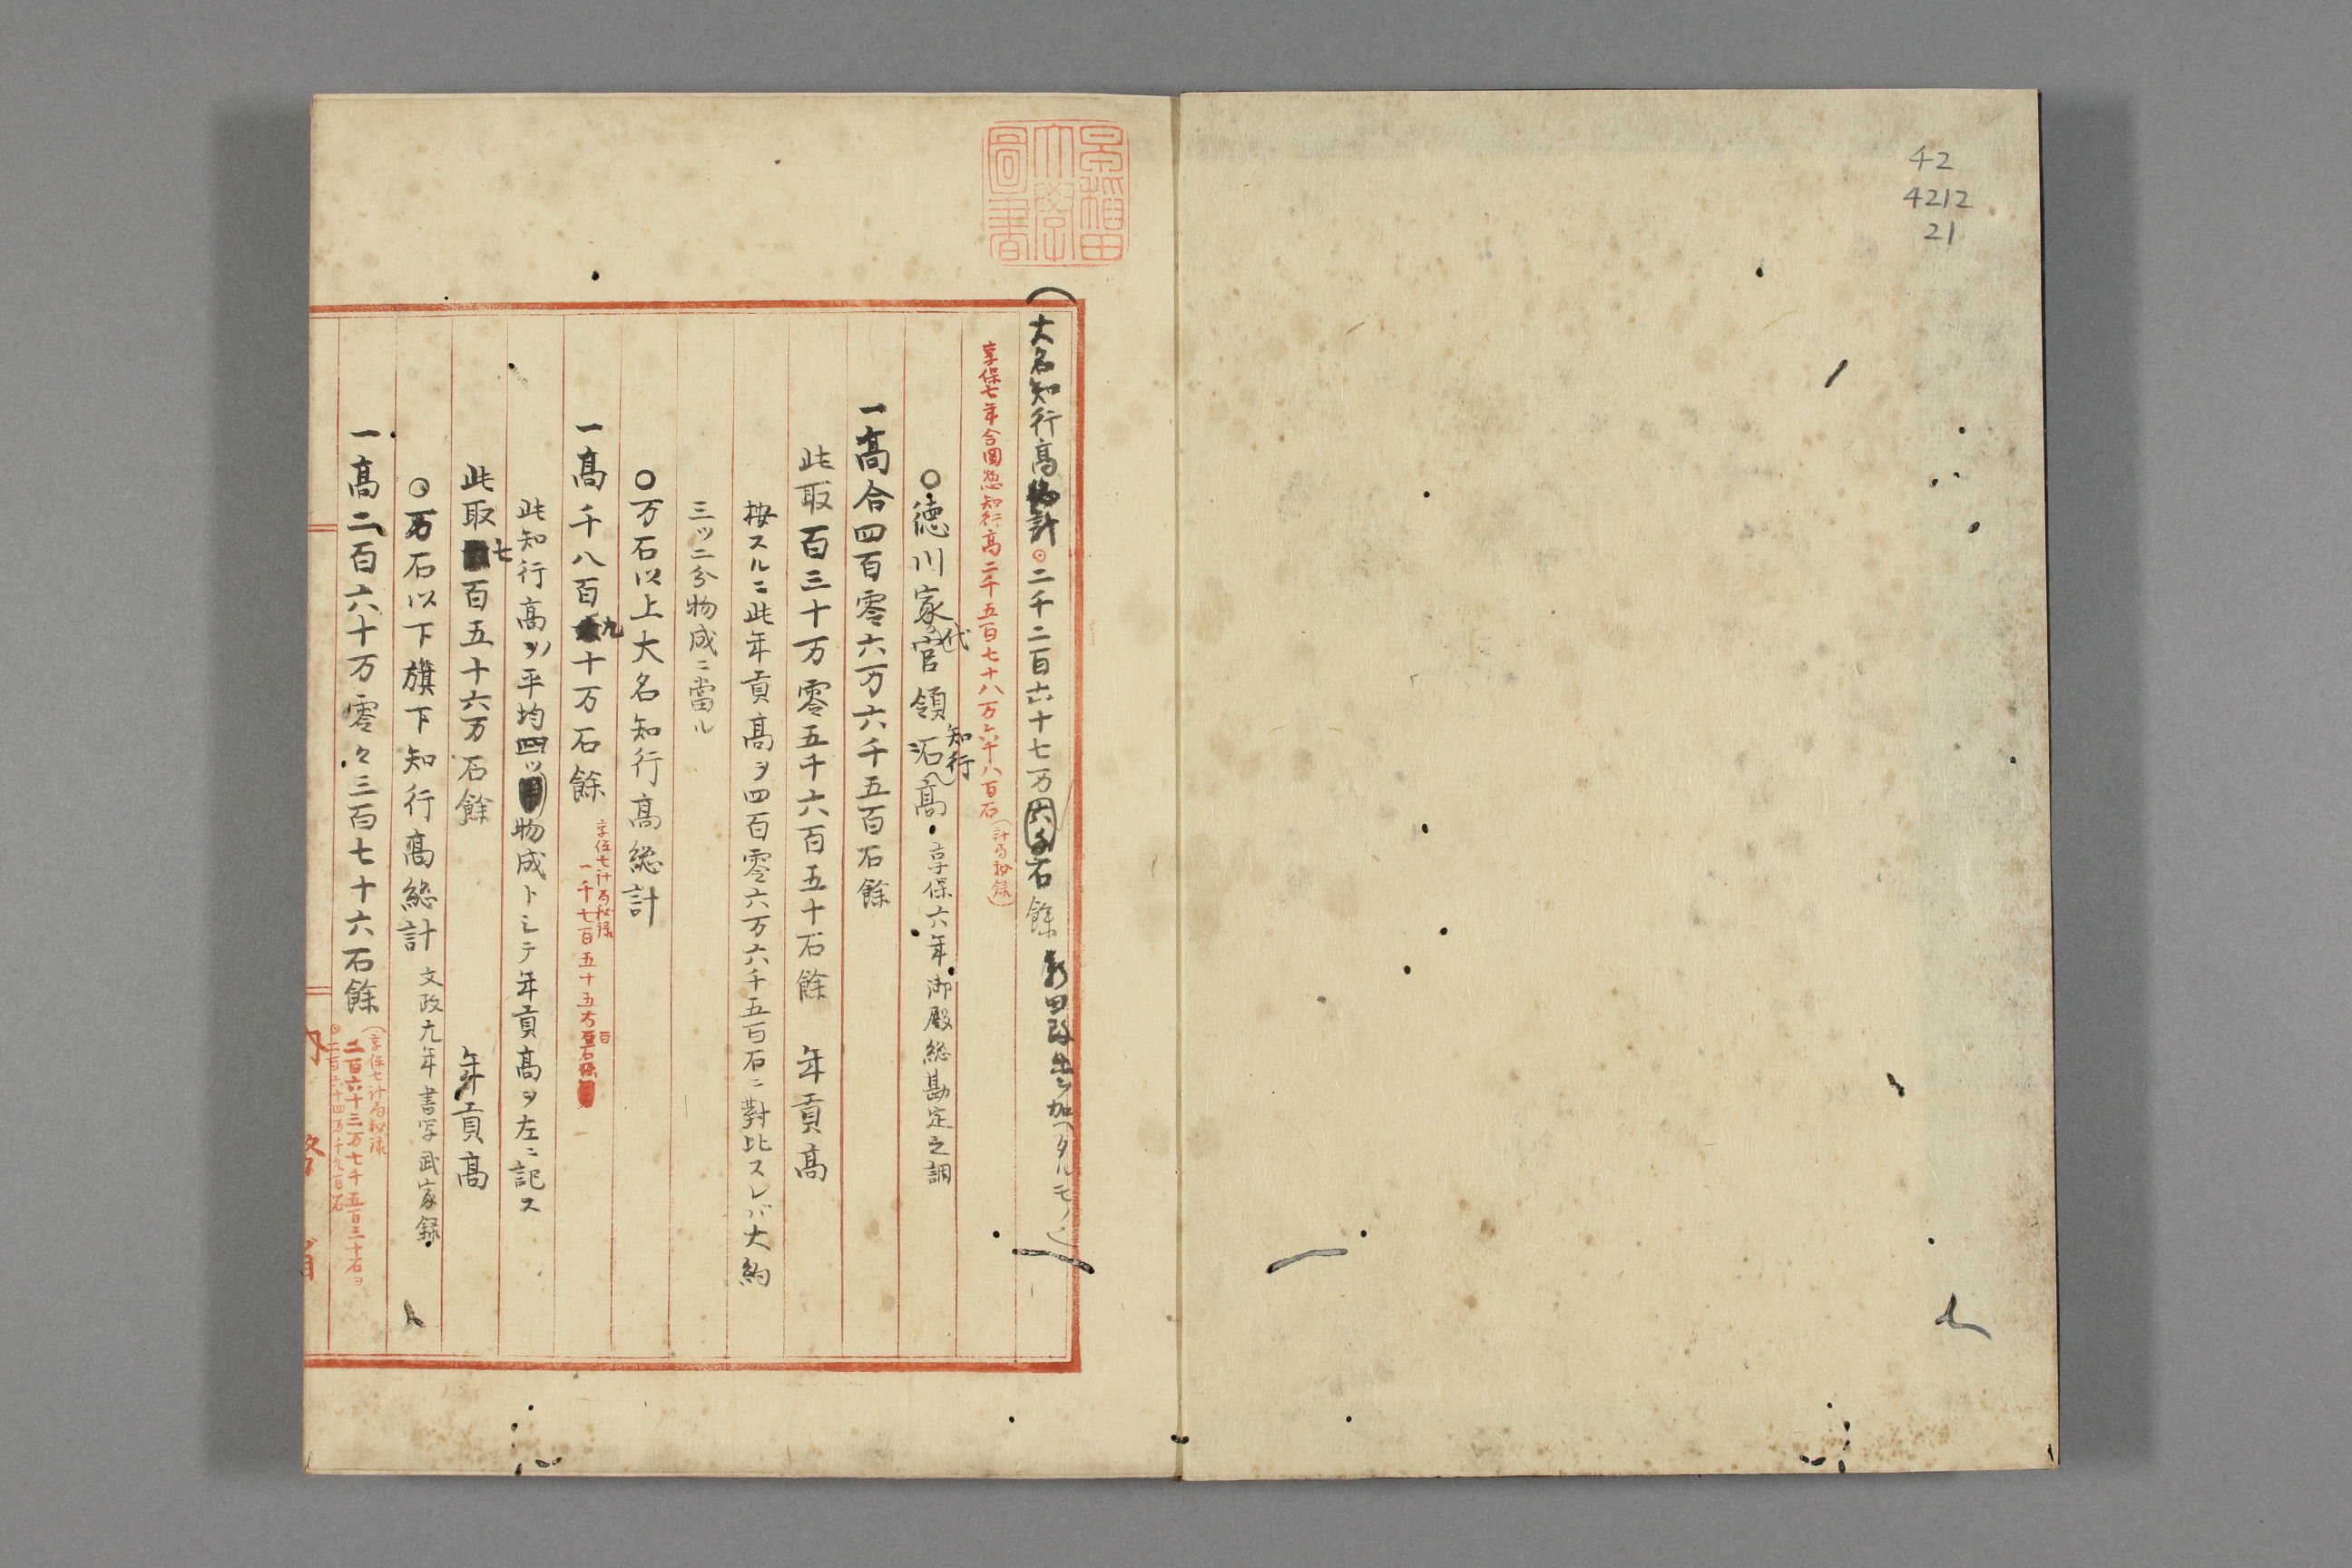 42
4212
21
早稲田大學圖書
大名知行高総計二千二百六十七万六千石餘 新田改出シ加ヘタルモノ也
享保七年合国惣知行高二千五百七十八万六千八百石(計局秘録)
○徳川家代官領沰知行高 享保六年御殿総勘定之調
一高合四百零六万六千五百石餘
此取百三十万零五千六百五十石餘 年貢高
按スルニ此年貢高ヲ四百零六万六千五百石ニ對比スレバ大約
三ツ二分物成ニ當ル
○万石以上大名知行高総計
一高千八百九十万石餘 享保七計局秘録
一千七百五十五万
此知行高ヲ平均四ツ物成トシテ年貢高ヲ左ニ記ス
此取七百五十六万石餘 年貢高
○万石以下旗下知行高総計 文政九年書写武家録
一高二百六十万零々三百七十六石餘 (享保七計局秘録
二百六十三万七千五百三十石ヲ
二百六十四万千九百石
内務省